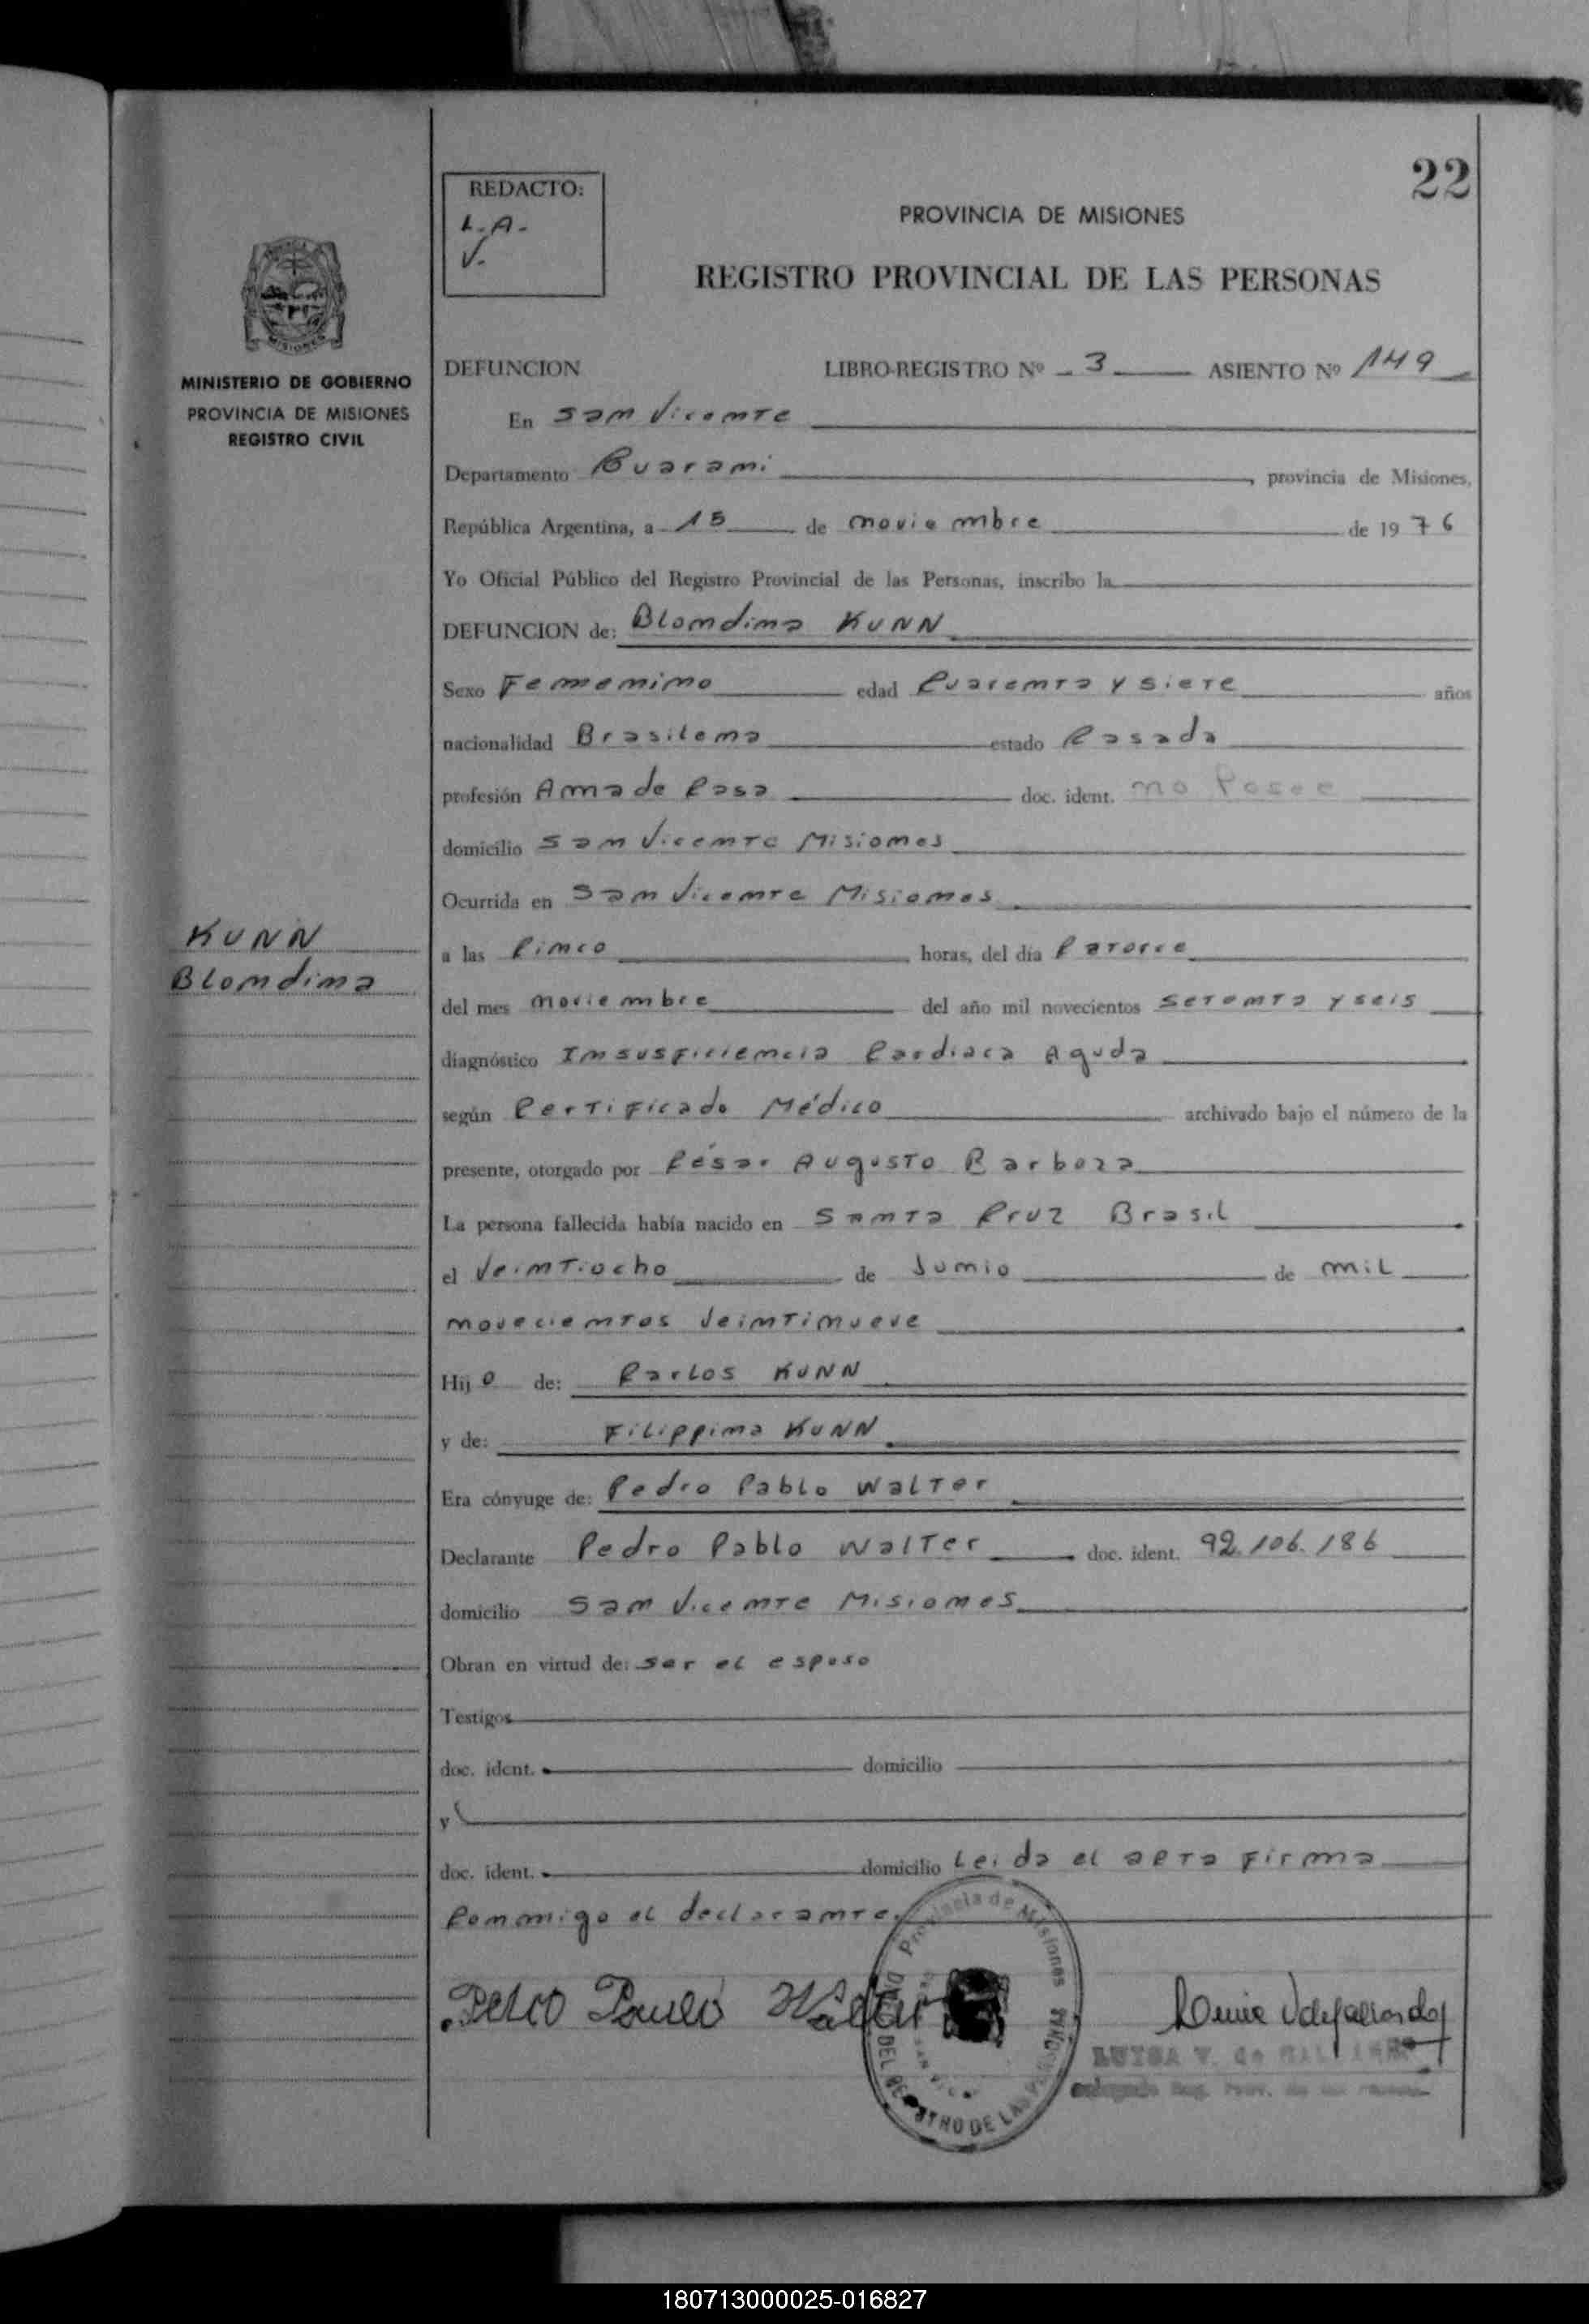 22
REDACTO:
L.A.
V.
PROVINCIA DE MISIONES
REGISTRO PROVINCIAL DE LAS PERSONAS
MINISTERIO DE GOBIERNO
PROVINCIA DE MISIONES
REGISTRO CIVIL
DEFUNCION LIBRO-REGISTRO Nº 3 ASIENTO Nº 149
En San Vicente
Departamento Guarani, provincia de Misiones,
República Argentina, a 15 de noviembre de 1976
Yo Oficial Público del Registro Provincial de las Personas, inscribo la
DEFUNCION de: Blondina KUNN
Sexo Femenino edad Cuarenta y siete años
nacionalidad Brasilena estado Casada
profesión Ama de Casa doc. ident. no Posee
domicilio San Vicente Misiones
Ocurrida en San Vicente Misiones
KUNN
Blondina
a las Cinco horas, del día Catorce
del mes noviembre del año mil novecientos setenta y seis
diagnóstico Insusficiencia Cardiaca Aguda
según Certificado Médico archivado bajo el número de la
presente, otorgado por César Augusto Barboza
La persona fallecida había nacido en Santa Cruz Brasil
el Veintiocho de Junio de mil
novecientos Veintinueve
Hijo de: Carlos KUNN
y de: Filippina KUNN
Era cónyuge de: Pedro Pablo Walter
Declarante Pedro Pablo Walter doc. ident. 92.106.186
domicilio San Vicente Misiones
Obran en virtud de: ser el esposo
Testigos
doc. ident. domicilio
y
doc. ident. domicilio Leida el acta firma
Conmigo el declarante.
Provincia de Misiones
DEL REGISTRO DE LAS
LUISA V. de
180713000025-016827